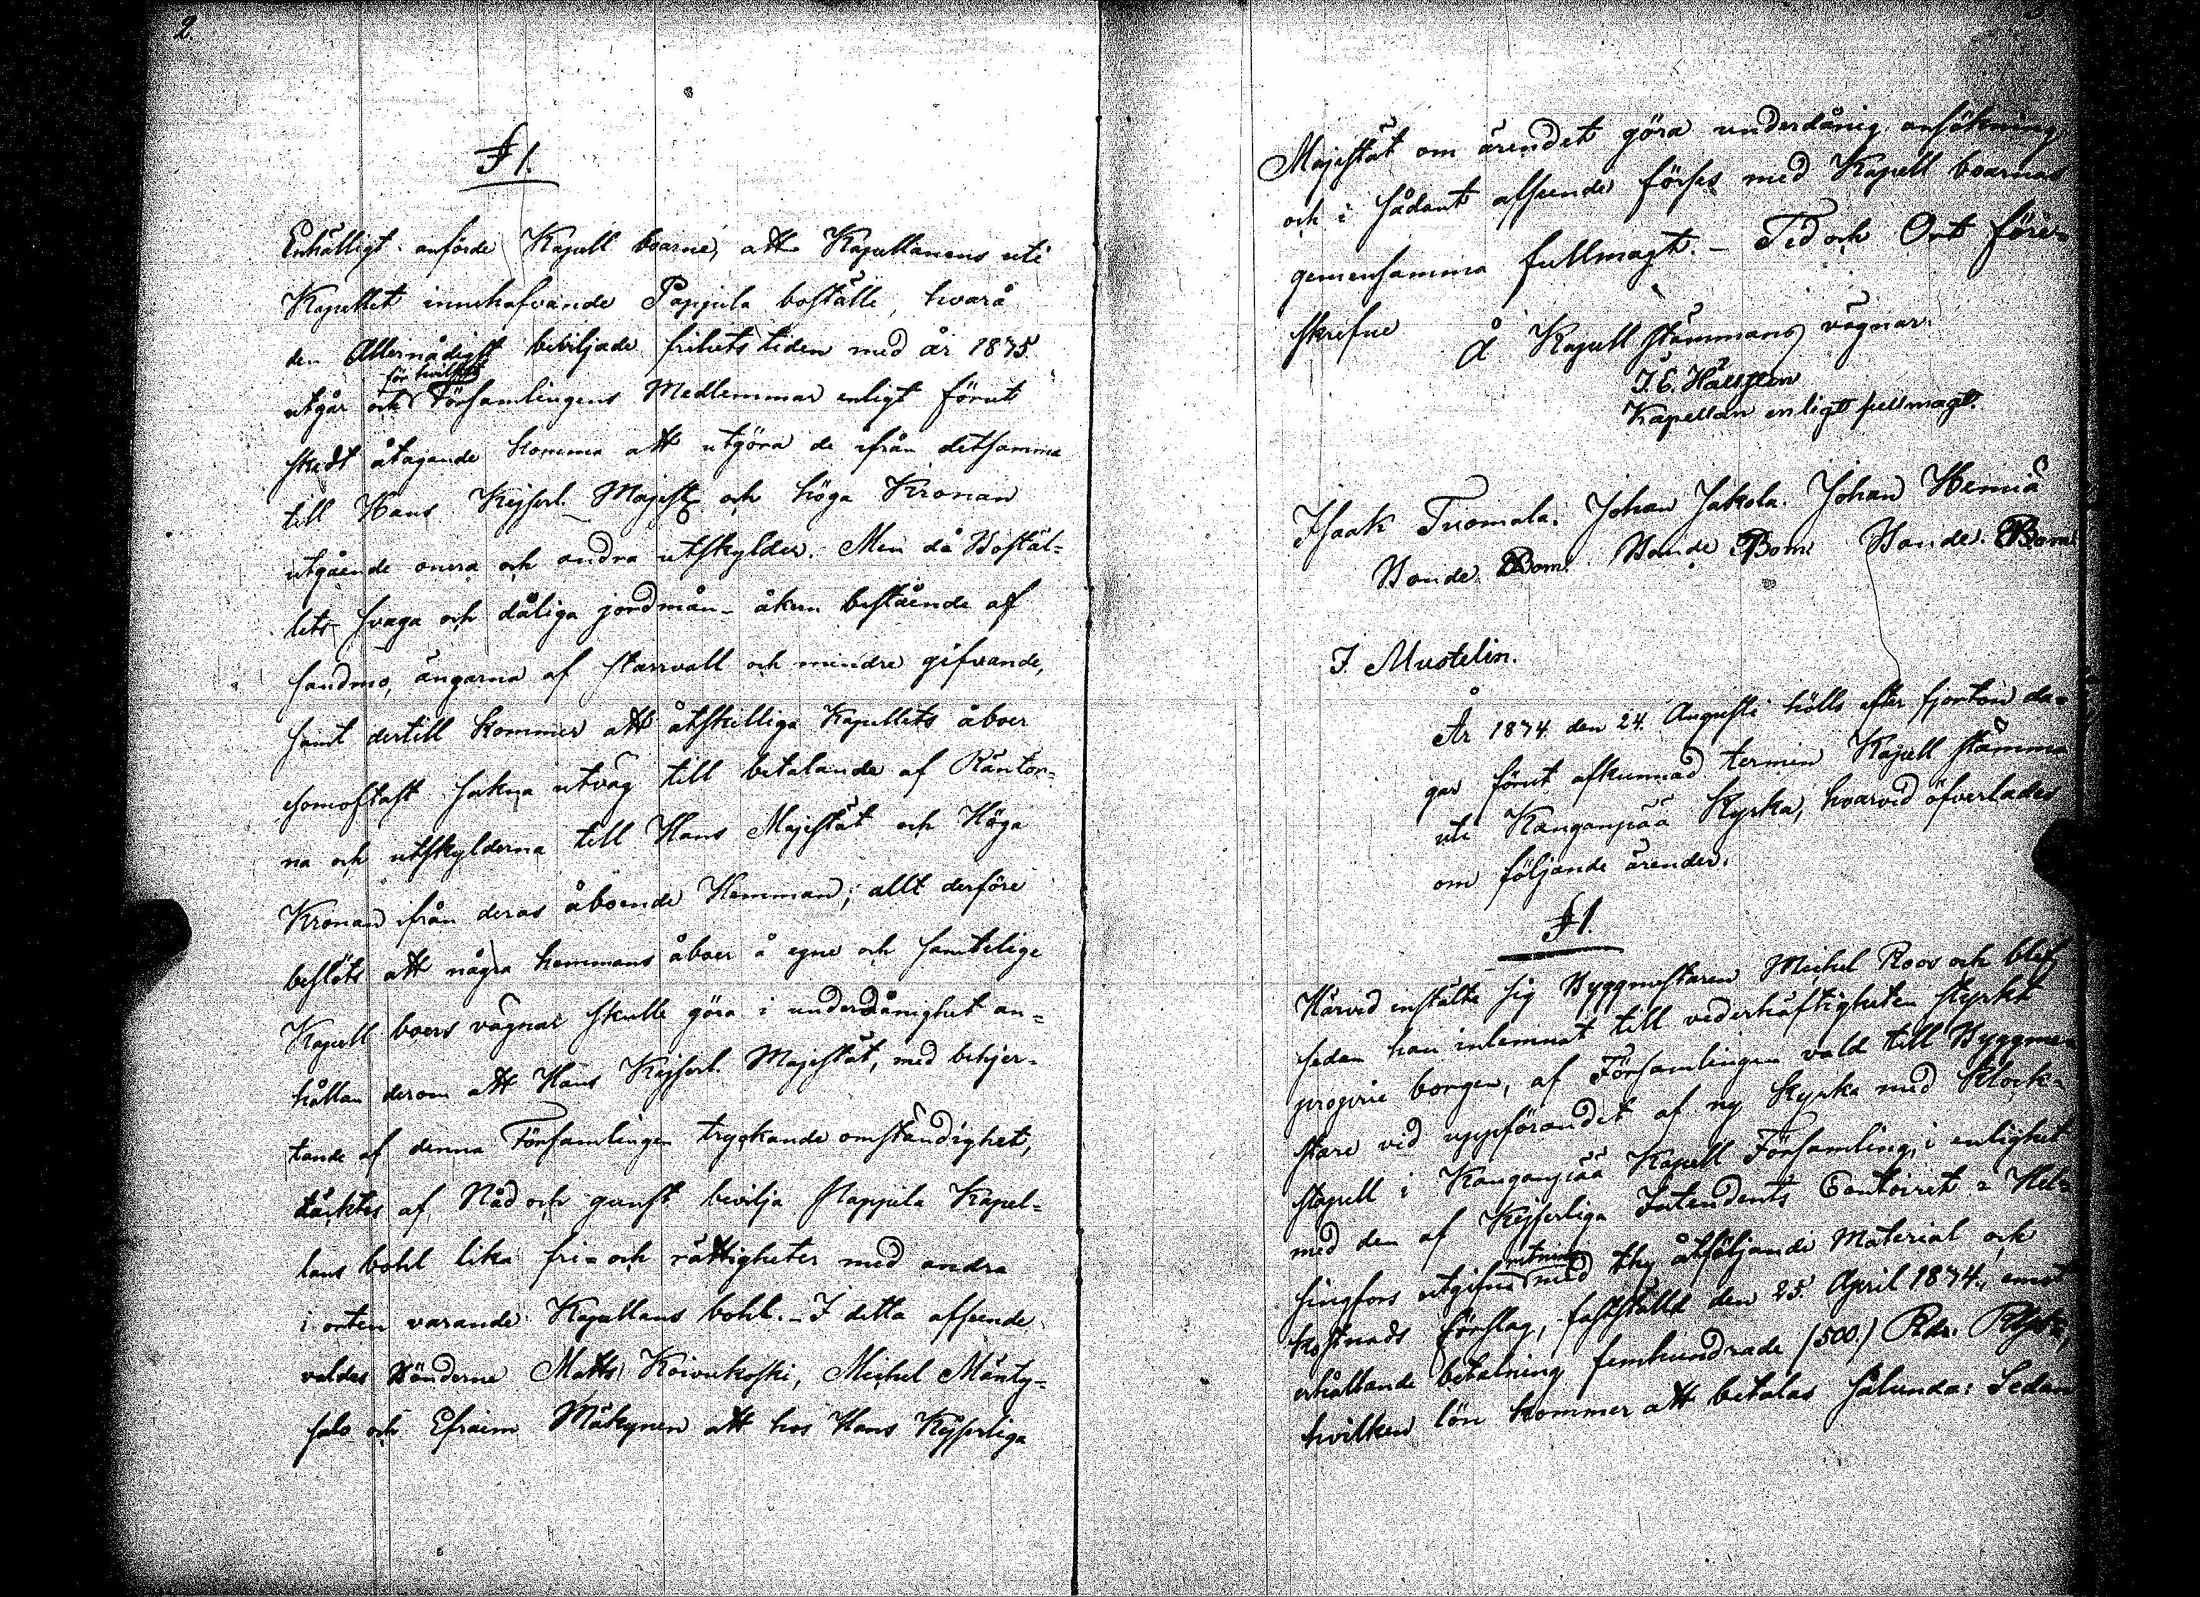 2
§ 1.
Enhälligt anförde Kapell boarne, att Kapellanens uti
Kapellet innehafvande Pappila boställe, hvarå
den Allernådigst beviljade frihets tiden med år 1875
för hvilket
utgår och Församlingens Medlemmar enligt förut
skedt åtagande komma att utgöra de ifrån detsamma
till Hans Kejserl. Majest. och höga Kronan
utgående onera och andra utskylder. Men då Bostäl-
lets svaga och dåliga jordmån - åkern bestående af
sandmo, ängarna af starrvall och mindre gifvande,
samt dertill kommer att åtskilliga Kapellets åboer
somoftast sakna utväg till betalande af Räntor-
na och utskylderna till Hans Majestät och Höga
Kronan ifrån deras åboende Hemman; allt derföre
beslöts att några hemmans åboer å egne och samtelige
Kapell boers vägnar skulle göra i underdånighet an-
hållan derom att Hans Kejserl. Majestät, med behjer-
tande af denna Församlingen tryckande omständighet,
täcktes af Nåd och gunst bevilja Pappila Kapel-
lans bohl lika fri- och rättigheter med andra
i orten varande Kapellans bohl. - I detta afseende
valdes Bönderne Matts Koivukoski, Michel Mänty-
salo och Efraim Mäkynen att hos Hans Kejserliga
Majestät om ärendet göra underdånig ansökning
och i sådant afseende förses med Kapell boarnas
gemensamma fullmagt. - Tid och Ort före-
skrefne
å Kapell stämmans vägnar:
Kapellan enligt fullmagt.
Isaak Tuomala. Johan Jakola. Johan Hemiä
Bonde. Bom. Bonde Bom. Bonde. Bom.
J. Mustelin.
År 1874 den 24. Augusti hölls efter fjorton da-
gar förut afkunnad termin Kapell stämma
uti Kanganpää Kyrka, hvarvid öfverlades
om följande ärender.
§ 1.
Härvid instälte sig Byggmästaren Michel Roos och blef
sedan han inlemnat till vederhäftigheten styrkt
proprie borgen, af Församlingen vald till Byggmä-
stare vid uppförandet af ny Kyrka med Klock-
stapell i Kanganpää Kapell Församling, i enlighet
med den af Kejserliga Intendents Contoiret i Hel-
ritning
singfors utgifna med thy åtföljande Material och
kostnads förslag, fastställd den 25. April 1874., emot
erhållande betalning femhundrade (500.) Rdr.
hvilken lön kommer att betalas sålunda: Sedan